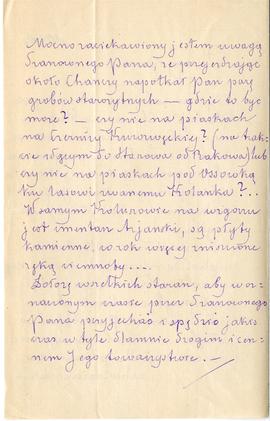 Mocno zaciekawiony jestem uwagą
Szanownego Pana, że przejeżdżając
około Chańczy napotkał Pan parę
grobów starożytnych — gdzie to być
może? — czy nie na piaskach
na (na trak-
cie idącym do Staszowa od Rakowa) lub
czy nie na piaskach pod Ossówką
ku lasowi zwanemu Kolanka? ..
W samym na wzgórzu
jest cmentarz Aryjański, są płyty
kamienne, co rok więcej zniszczone
ręką ciemnoty ...
Dołożę wszelkich starań, aby w oz-
naczonym czasie przez Szanownego
Pana przyjechać i spędzić jakiś
czas w tyle dla mnie drogim i cen-
nem Jego towarzystwie. —